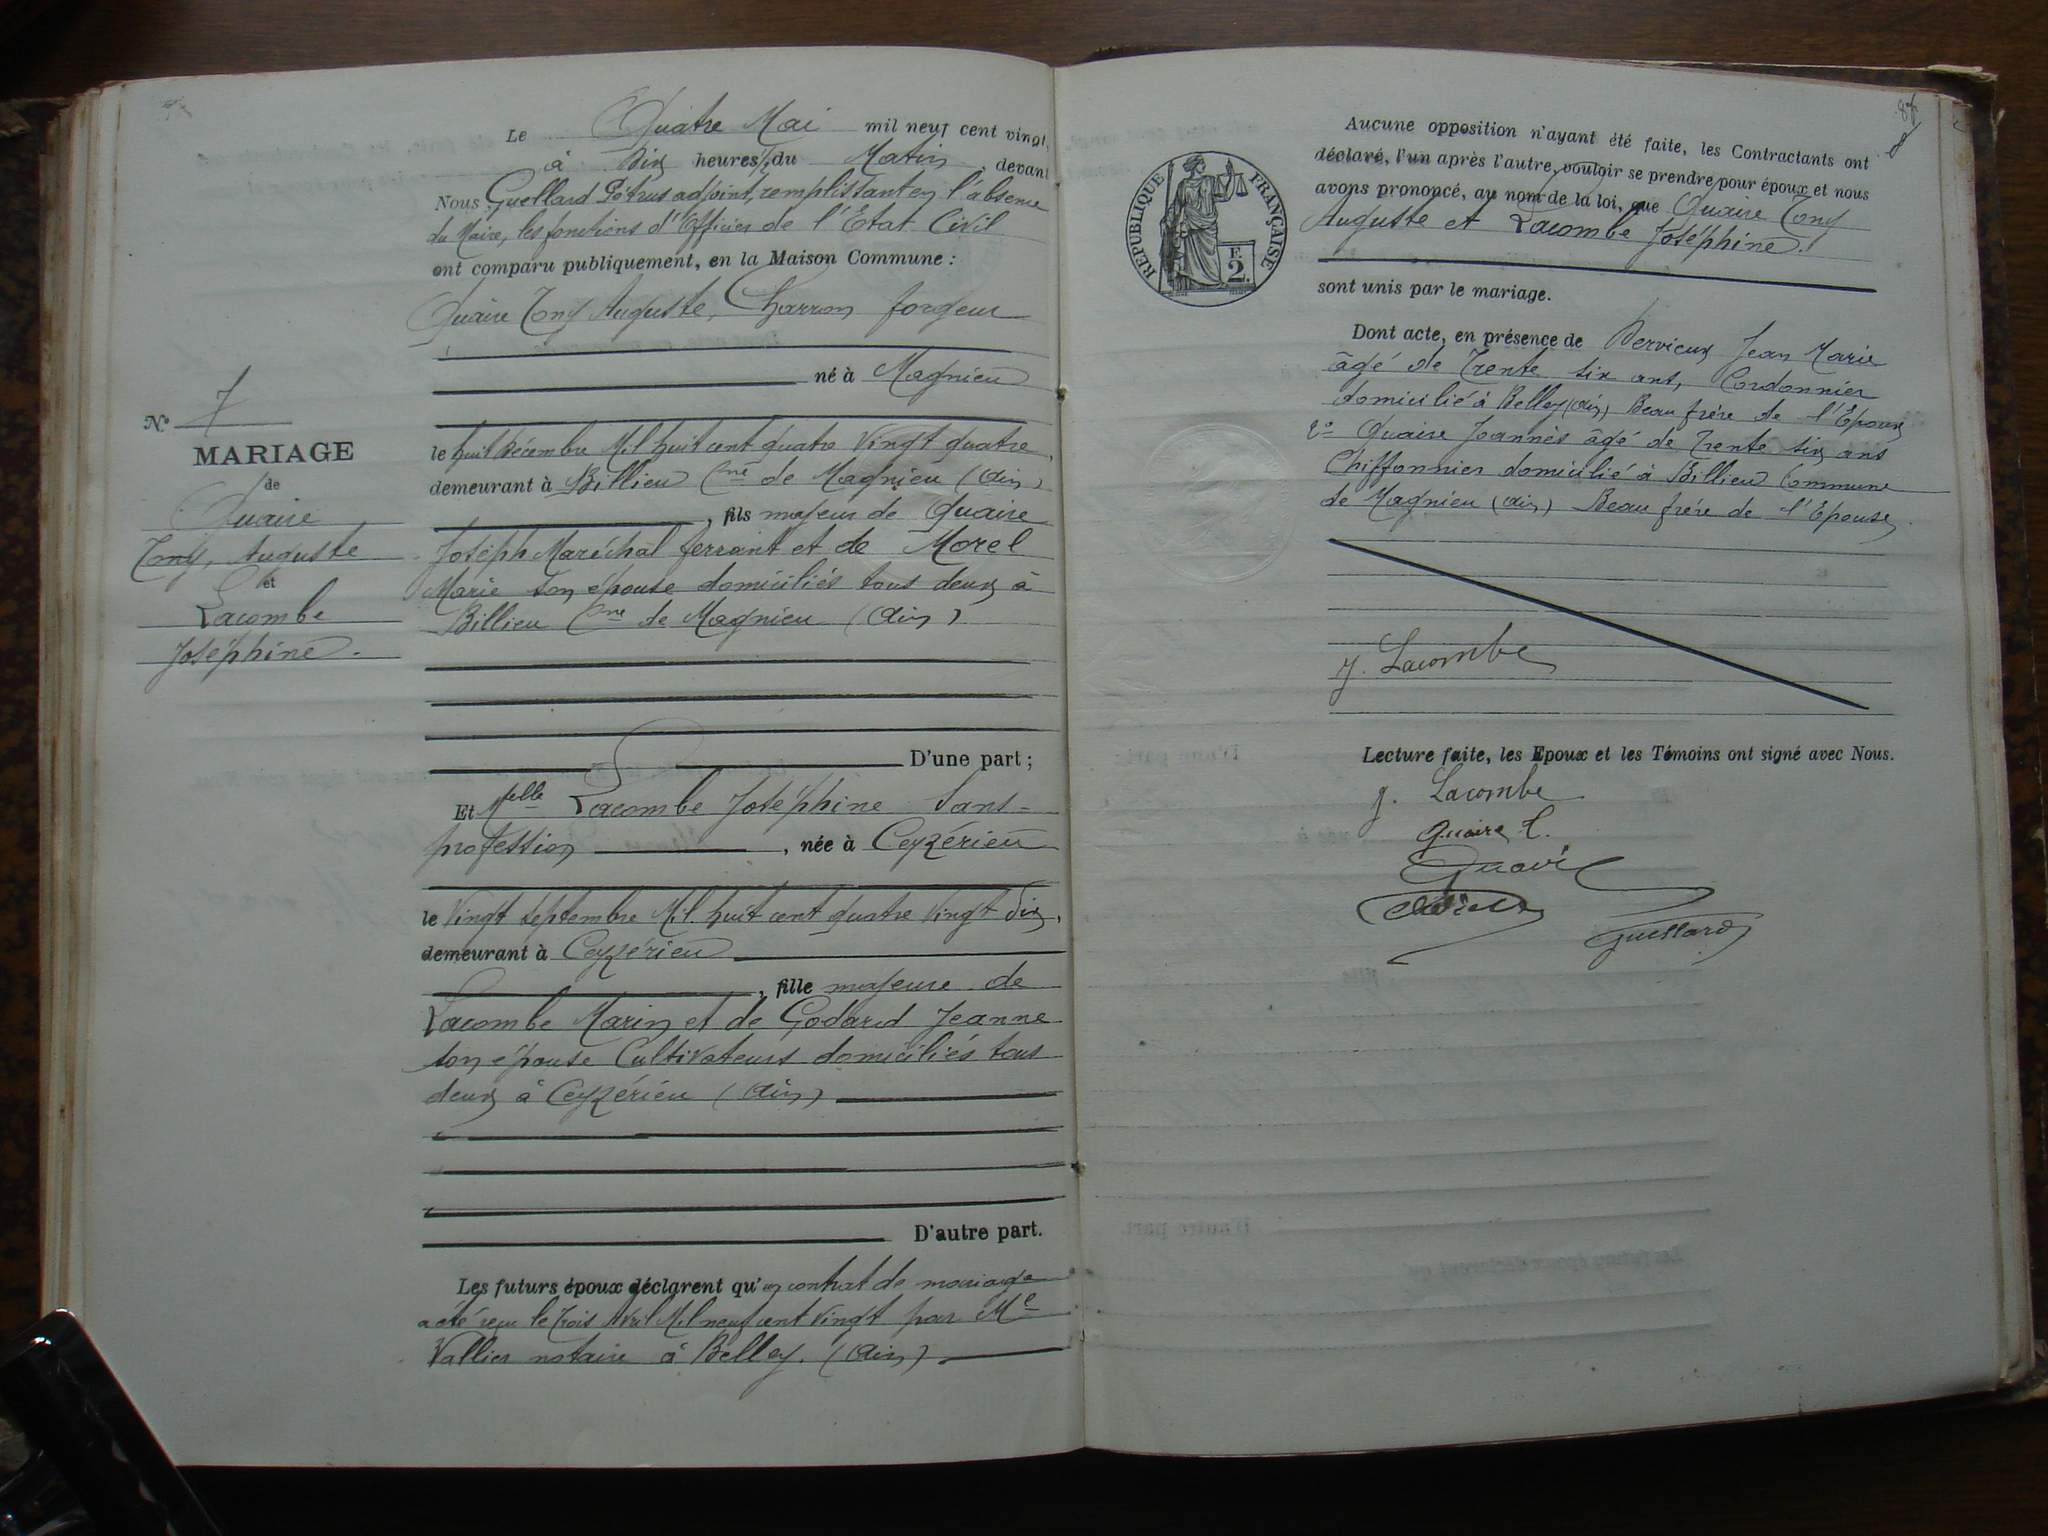 Le Quatre Mai mil neuf cent vingt,
à Dix heures ½ du Matin, devant
Nous Guellard Pétrus adjoint, remplissant en l'absence
du Maire, les fonctions d'Officier de l'État Civil
ont comparu publiquement, en la Maison Commune :
Quaire Tony Auguste, Charron forgeur
né à Magnieu
le huit Décembre Mil huit cent quatre Vingt quatre,
demeurant à Billieu Cne de Magnieu (Ain)
, fils majeur de Quaire
Joséph Maréchal ferrant et de Morel
Marie son épouse domiciliés tous deux à
Billieu Cne de Magnieu (Ain)
D'une part ;
Et Melle Lacombe Joséphine Sans-
profession, née à Ceyzérieu
le Vingt septembre Mil huit cent quatre Vingt Dix,
demeurant à Ceyzérieu
, fille majeure de
Lacombe Marin et de Godard Jeanne
son épouse Cultivateurs domiciliés tous
deux à Ceyzérieu (Ain)
D'autre part.
Les futurs époux déclarent qu'un contrat de mariage
a été reçu le Trois Avril Mil neuf cent Vingt par Me
Vallier notaire à Belley. (Ain)
No 7
MARIAGE
de
Quaire
Tony, Auguste
et
Lacombe
Joséphine.
RÉPUBLIQUE FRANÇAISE
F.
2.
Aucune opposition n'ayant été faite, les Contractants ont
déclaré, l'un après l'autre, vouloir se prendre pour époux et nous
avons prononcé, au nom de la loi, que Quaire Tony
Auguste et Lacombe Joséphine.
sont unis par le mariage.
Dont acte, en présence de Dervieux Jean Marie
âgé de Trente six ans, Cordonnier
domicilié à Belley (Ain) Beau frére de l'Epoux
2o Quaire Joannès âgé de Trente six ans
Chiffonnier domicilié à Billieu Commune
de Magnieu (Ain) Beau frére de l'Epouse.
J. Lacombe
Lecture faite, les Epoux et les Témoins ont signé avec Nous.
J. Lacombe
Quaire T.
Quaire
Guellard